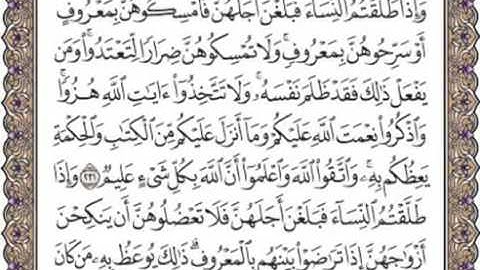 وَإِذَا طَلَّقْتُمُ ٱلنِّسَآءَ فَبَلَغْنَ أَجَلَهُنَّ فَأَمْسِكُوهُنَّ بِمَعْرُوفٍ
أَوْ سَرِّحُوهُنَّ بِمَعْرُوفٍۚ وَلَا تُمْسِكُوهُنَّ ضِرَارًا لِّتَعْتَدُوا۟ۚ وَمَن
يَفْعَلْ ذَٰلِكَ فَقَدْ ظَلَمَ نَفْسَهُۥۚ وَلَا تَتَّخِذُوٓا۟ ءَايَٰتِ ٱللَّهِ هُزُوًاۚ
وَٱذْكُرُوا۟ نِعْمَتَ ٱللَّهِ عَلَيْكُمْ وَمَآ أَنزَلَ عَلَيْكُم مِّنَ ٱلْكِتَٰبِ وَٱلْحِكْمَةِ
يَعِظُكُم بِهِۦۚ وَٱتَّقُوا۟ ٱللَّهَ وَٱعْلَمُوٓا۟ أَنَّ ٱللَّهَ بِكُلِّ شَىْءٍ عَلِيمٌ ٢٣١ وَإِذَا
طَلَّقْتُمُ ٱلنِّسَآءَ فَبَلَغْنَ أَجَلَهُنَّ فَلَا تَعْضُلُوهُنَّ أَن يَنكِحْنَ
أَزْوَٰجَهُنَّ إِذَا تَرَٰضَوْا۟ بَيْنَهُم بِٱلْمَعْرُوفِۗ ذَٰلِكَ يُوعَظُ بِهِۦ مَن كَانَ